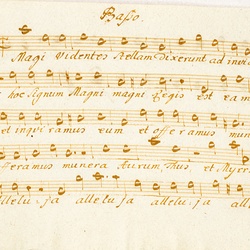 Basso.
Magi videntes stellam dixerunt ad invicem
hoc signum Magni magni Regis est eamus
et inquiramus eum et offeramus mun
fferamus munera Aurum, Thus, et Myrr
allelu-ja allelu ja allelu-ja al